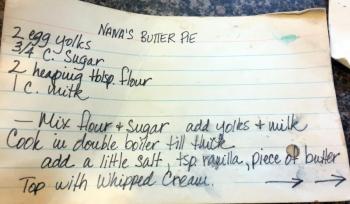 NANA'S BUTTER PIE
2 egg yolks
3/4 C. Sugar
2 heaping tblsp. flour
1 C. milk
— Mix flour + sugar add yolks + milk
Cook in double boiler till thick
add a little salt, tsp vanilla, piece of butter
Top with Whipped Cream. → →